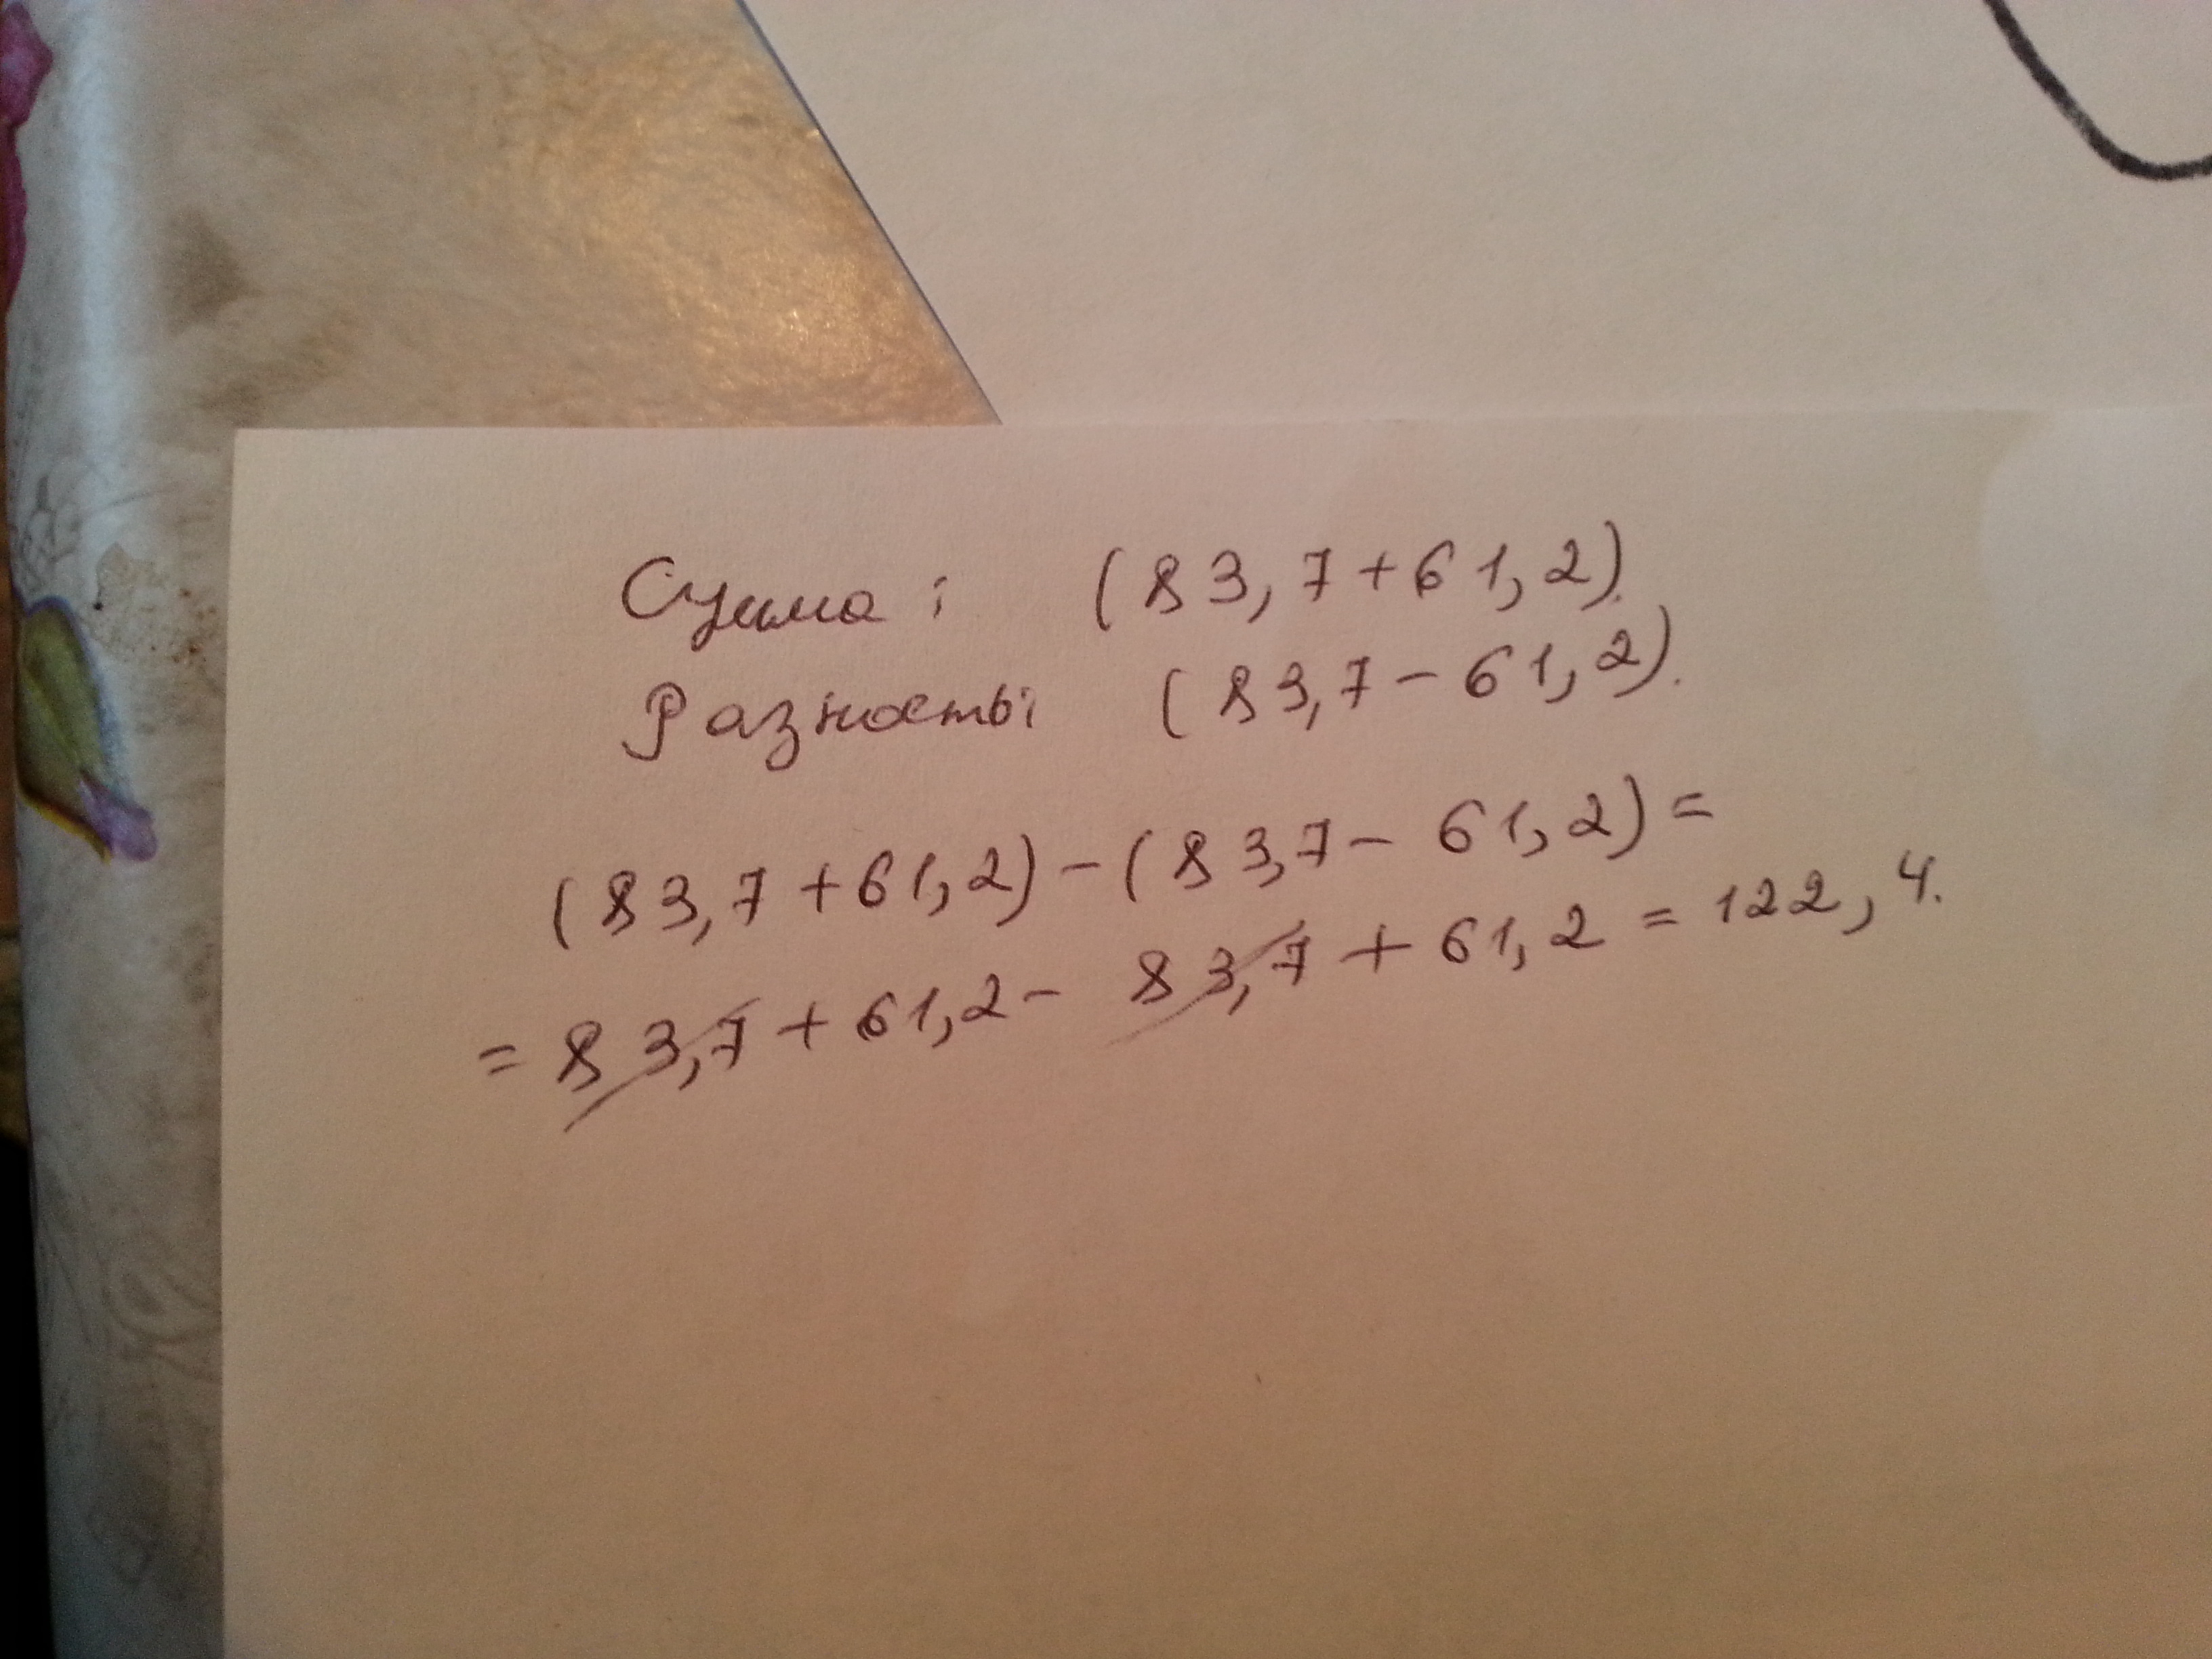 Сумма: (83,7+61,2).
Разность: (83,7-61,2).
(83,7+61,2)-(83,7-61,2)=
=83,7+61,2-83,7+61,2=122,4.